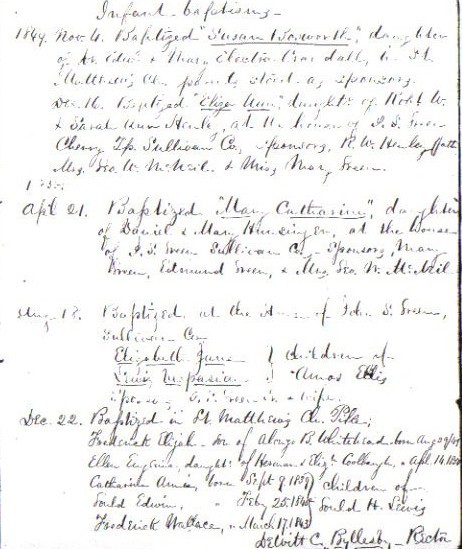 Infant baptisms
1849. Nov. 4. Baptized "Susan Bosworth", daughter
of & Mary Electra Crandall, in St.
Matthew's Ch. parents stood as sponsors.
Dec. 16. Baptized "Eliza Ann", daughtr of Robt W.
& Sarah Ann Henley, at the house of J. S. Green
Cherry Tp. Sullivan Co. Sponsors, R. W. Henley,
Mrs. Geo. W. McNeil. & Miss Mary Green.
Apl 21. Baptized "Mary Catharine", daughter
of Daniel & Mary Hunsinger, at the House
of J. S. Green Sullivan Co. Sponsors, Mary
Green, Edmund Green, & Mrs. Geo. W. McNeil
Aug 18. Baptized at the House of John S. Green,
Sullivan Co.
Elizabeth Jane } children of
Lewis Vespasian } Amos Ellis
Sponsors J. S. Green & wife.
Dec. 22. Baptized in St. Matthew's Ch. Pike;
Frederick Elijah - son of Alonzo B. Whitehead, born Aug 29
Ellen Eugenia, daughtr of Herman & Elizth Coolbaugh, " Apl 14. 1850
Catharine Annis, born Sept 9. 1839 } children of
Gould Edwin, " Feby 25. } Gould H. Lewis
Frederick Wallace, " March 17. 1843
DeWitt C. Byllesby - Rector